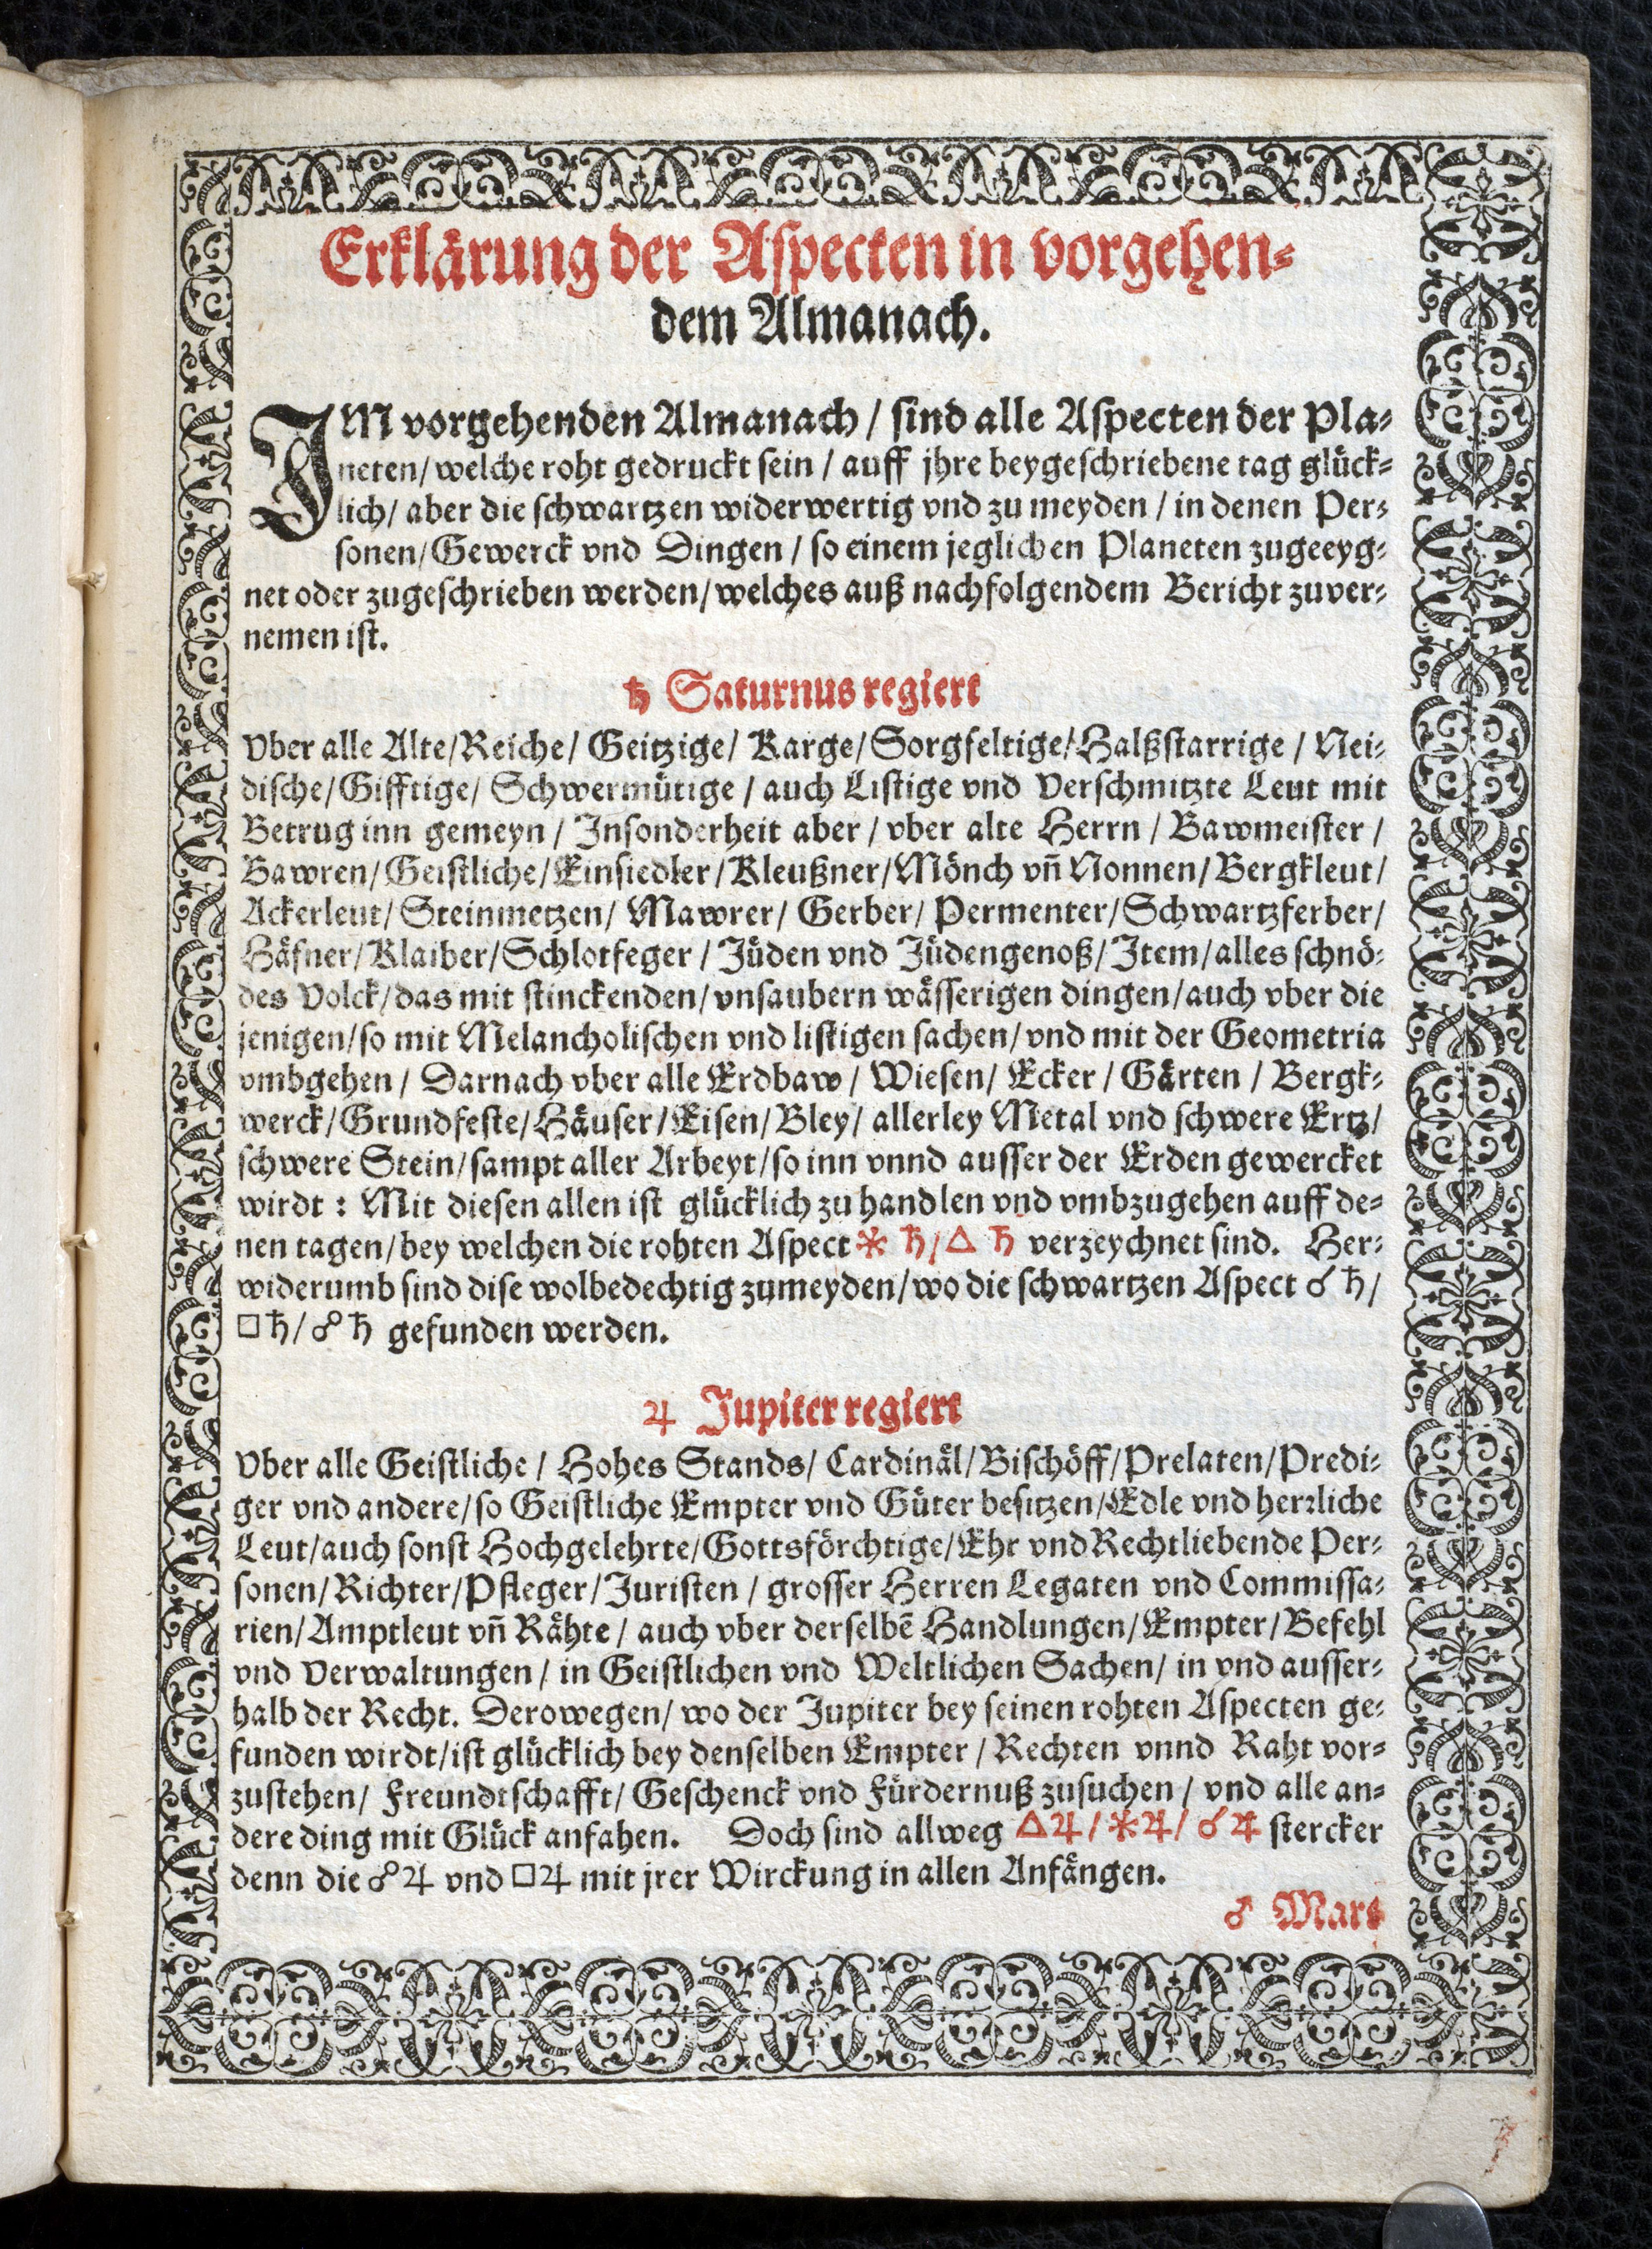 Erklärung der Aspecten in vorgehen-
dem Almanach.
IM vorgehenden Almanach / sind alle Aspecten der Pla-
neten / welche roht gedruckt sein / auff jhre beygeschriebene tag glück-
lich / aber die schwartzen widerwertig vnd zu meyden / in denen Per-
sonen / Gewerck vnd Dingen / so einem jeglichen Planeten zugeeyg-
net oder zugeschrieben werden / welches auß nachfolgendem Bericht zuver-
nemen ist.
♄ Saturnus regiert
Vber alle Alte / Reiche / Geitzige / Karge / Sorgfeltige / Halßstarrige / Nei-
dische / Gifftige / Schwermütige / auch Listige vnd Verschmitzte Leut mit
Betrug inn gemeyn / Insonderheit aber / vber alte Herrn / Bawmeister /
Bawren / Geistliche / Einsiedler / Kleußner / Mönch vñ Nonnen / Bergkleut /
Ackerleut / Steinmetzen / Mawrer / Gerber / Permenter / Schwartzferber /
Häfner / Klaiber / Schlotfeger / Jüden vnd Jüdengenoß / Item / alles schnö-
des Volck / das mit stinckenden / vnsaubern wässerigen dingen / auch vber die
jenigen / so mit Melancholischen vnd listigen sachen / vnd mit der Geometria
vmbgehen / Darnach vber alle Erdbaw / Wiesen / Ecker / Gärten / Bergk-
werck / Grundfeste / Häuser / Eisen / Bley / allerley Metal vnd schwere Ertz /
schwere Stein / sampt aller Arbeyt / so inn vnnd ausser der Erden gewercket
wirdt : Mit diesen allen ist glücklich zu handlen vnd vmbzugehen auff de-
nen tagen / bey welchen die rohten Aspect ⚹ ♄ / △ ♄ verzeychnet sind. Her-
widerumb sind dise wolbedechtig zumeyden / wo die schwartzen Aspect ☌ ♄ /
□ ♄ / ☍ ♄ gefunden werden.
♃ Jupiter regiert
Vber alle Geistliche / Hohes Stands / Cardinäl / Bischöff / Prelaten / Predi-
ger vnd andere / so Geistliche Empter vnd Güter besitzen / Edle vnd herrliche
Leut / auch sonst Hochgelehrte / Gottsförchtige / Ehr vnd Rechtliebende Per-
sonen / Richter / Pfleger / Juristen / grosser Herren Legaten vnd Commissa-
rien / Amptleut vñ Rähte / auch vber derselbē Handlungen / Empter / Befehl
vnd Verwaltungen / in Geistlichen vnd Weltlichen Sachen / in vnd ausser-
halb der Recht. Derowegen / wo der Jupiter bey seinen rohten Aspecten ge-
funden wirdt / ist glücklich bey denselben Empter / Rechten vnnd Raht vor-
zustehen / Freundtschafft / Geschenck vnd Fürdernuß zusuchen / vnd alle an-
dere ding mit Glück anfahen. Doch sind allweg △ ♃ / ⚹ ♃ / ☌ ♃ stercker
denn die ☍ ♃ vnd □ ♃ mit jrer Wirckung in allen Anfängen.
♂ Mars